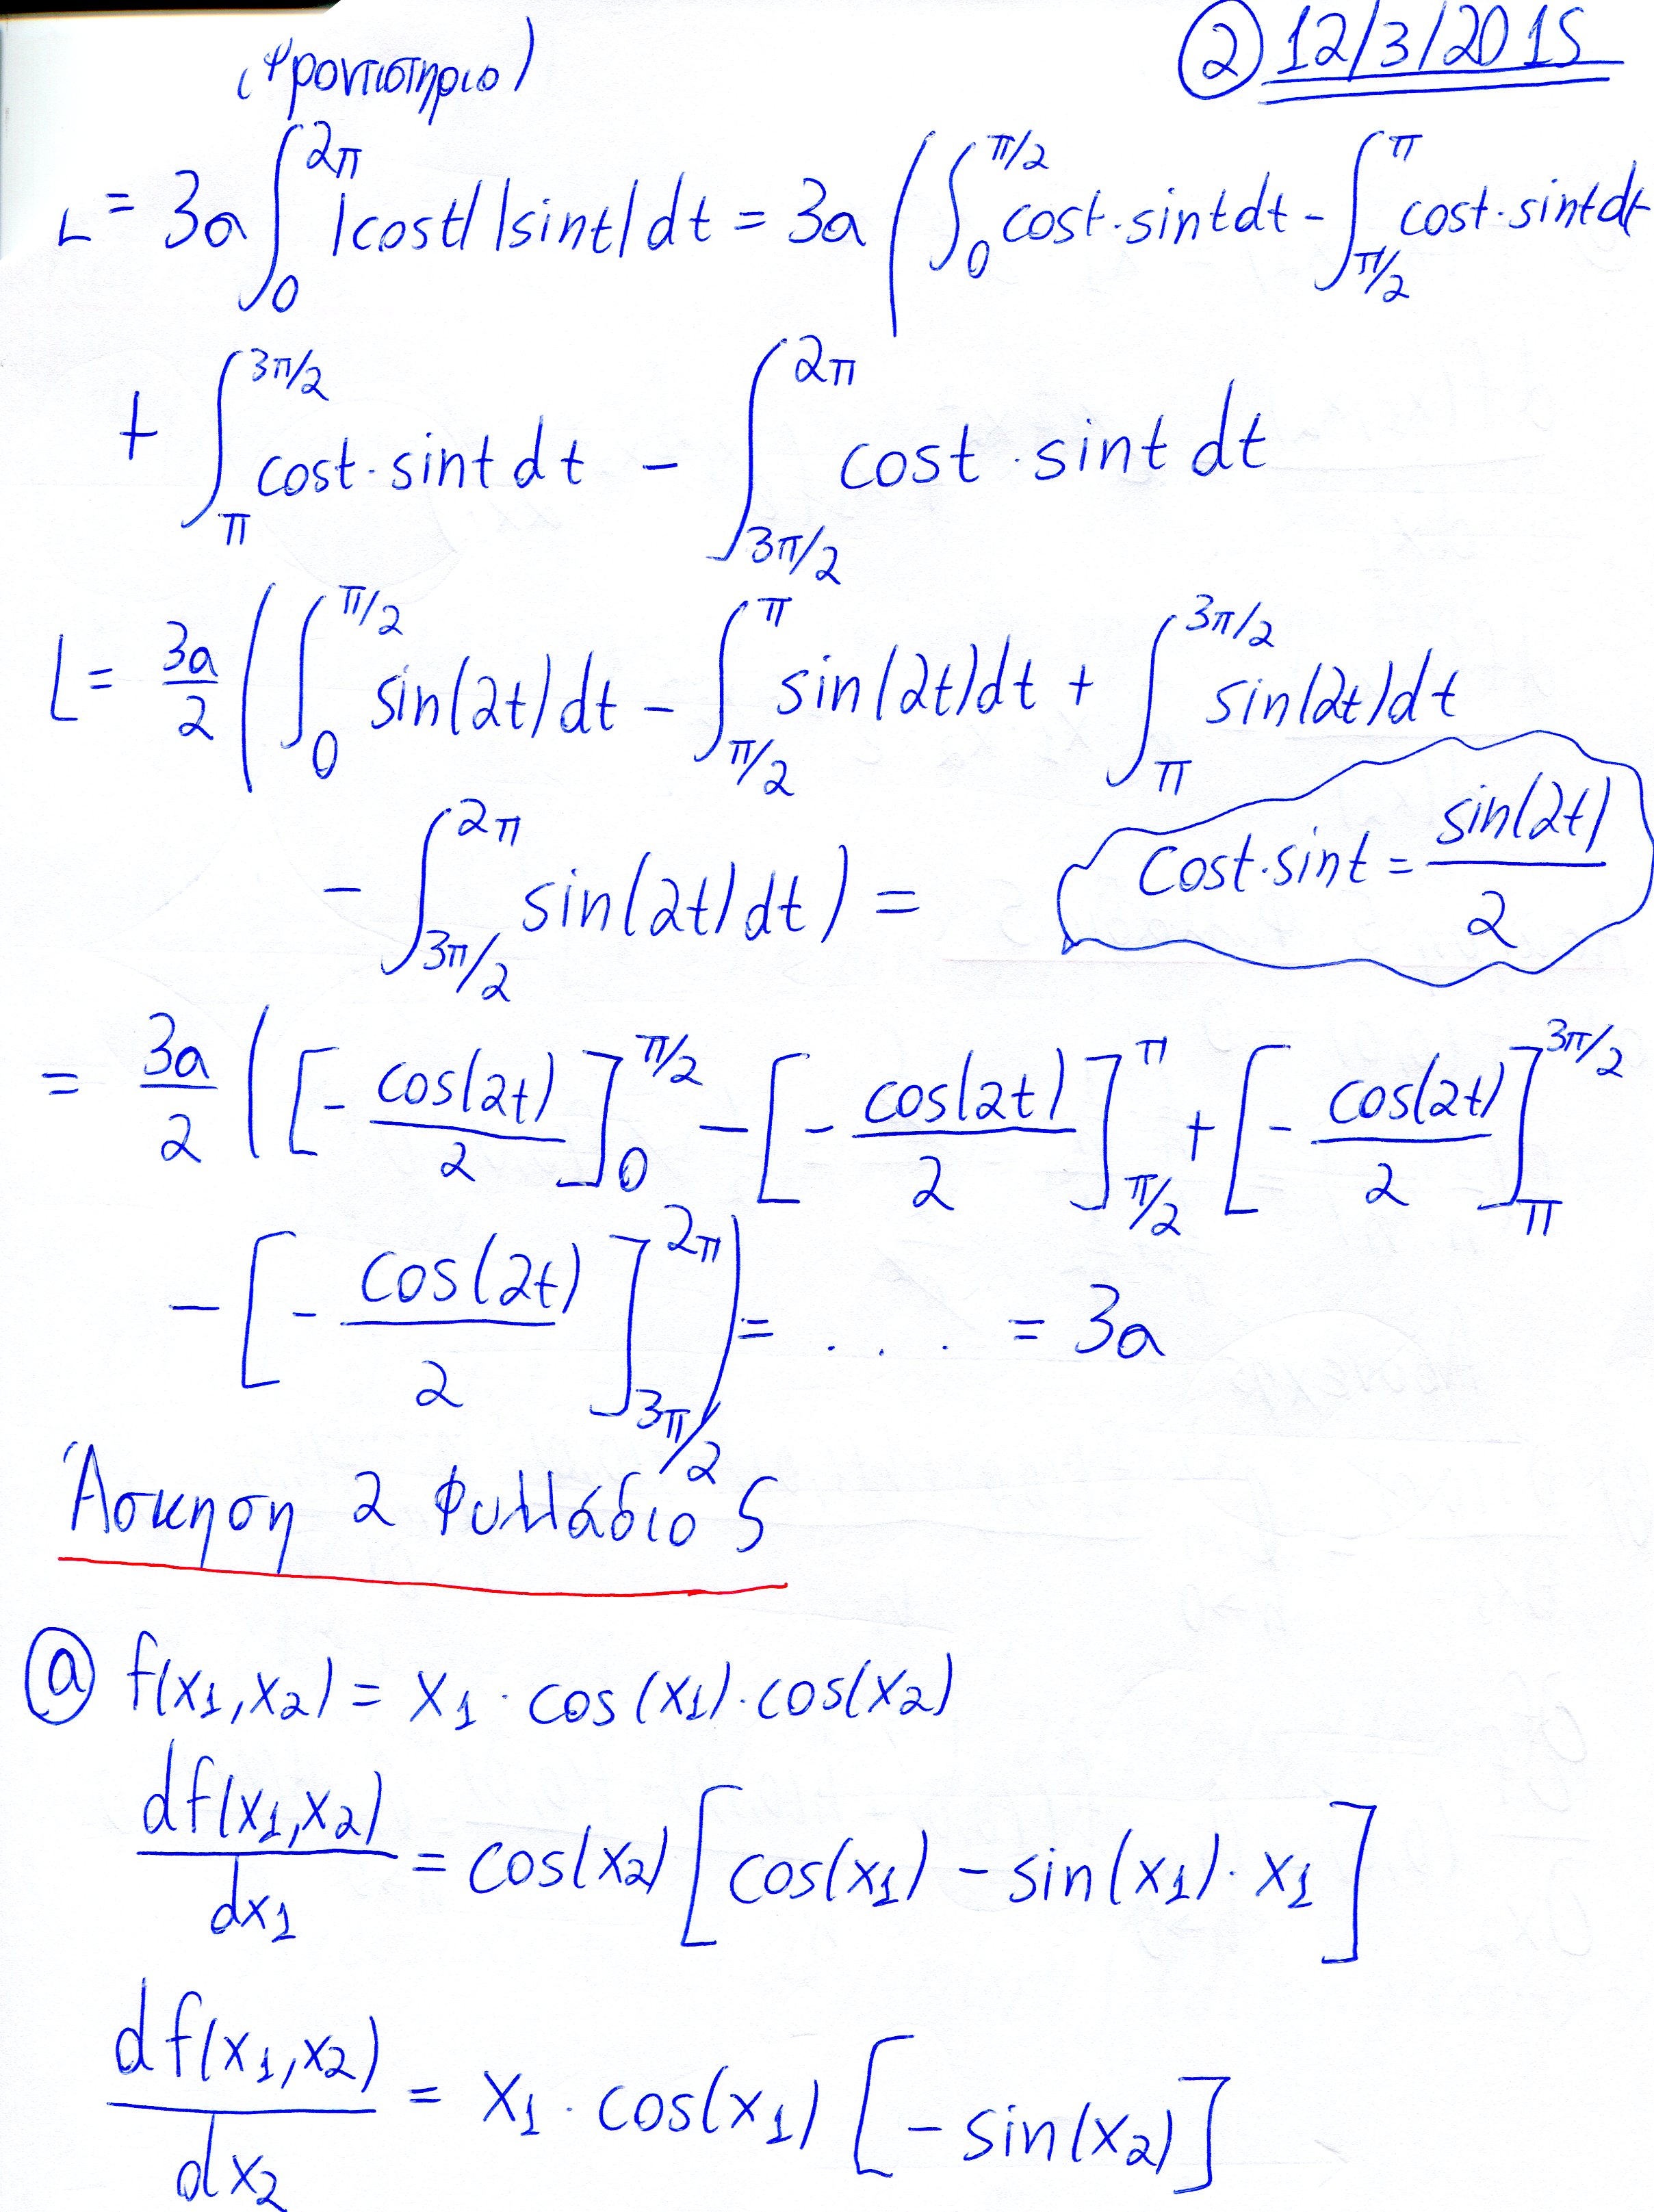 (Φροντιστηριο) ② 12/3/2015
L = 3a ∫₀^{2π} |cost| |sint| dt = 3a ( ∫₀^{π/2} cost·sintdt - ∫_{π/2}^{π} cost·sintdt
+ ∫_{π}^{3π/2} cost·sintdt - ∫_{3π/2}^{2π} cost·sint dt
L = 3a/2 ( ∫₀^{π/2} sin(2t)dt - ∫_{π/2}^{π} sin(2t)dt + ∫_{π}^{3π/2} sin(2t)dt
- ∫_{3π/2}^{2π} sin(2t)dt ) =
cost·sint = sin(2t)/2
= 3a/2 ( [- cos(2t)/2]₀^{π/2} - [- cos(2t)/2]_{π/2}^{π} + [- cos(2t)/2]_{π}^{3π/2}
- [- cos(2t)/2]_{3π/2}^{2π} ) = .... = 3a
Άσκηση 2 Φυλλάδιο 5
ⓐ f(x₁,x₂) = x₁·cos(x₁)·cos(x₂)
df(x₁,x₂)/dx₁ = cos(x₂) [cos(x₁) - sin(x₁)·x₁]
df(x₁,x₂)/dx₂ = x₁·cos(x₁) [- sin(x₂)]